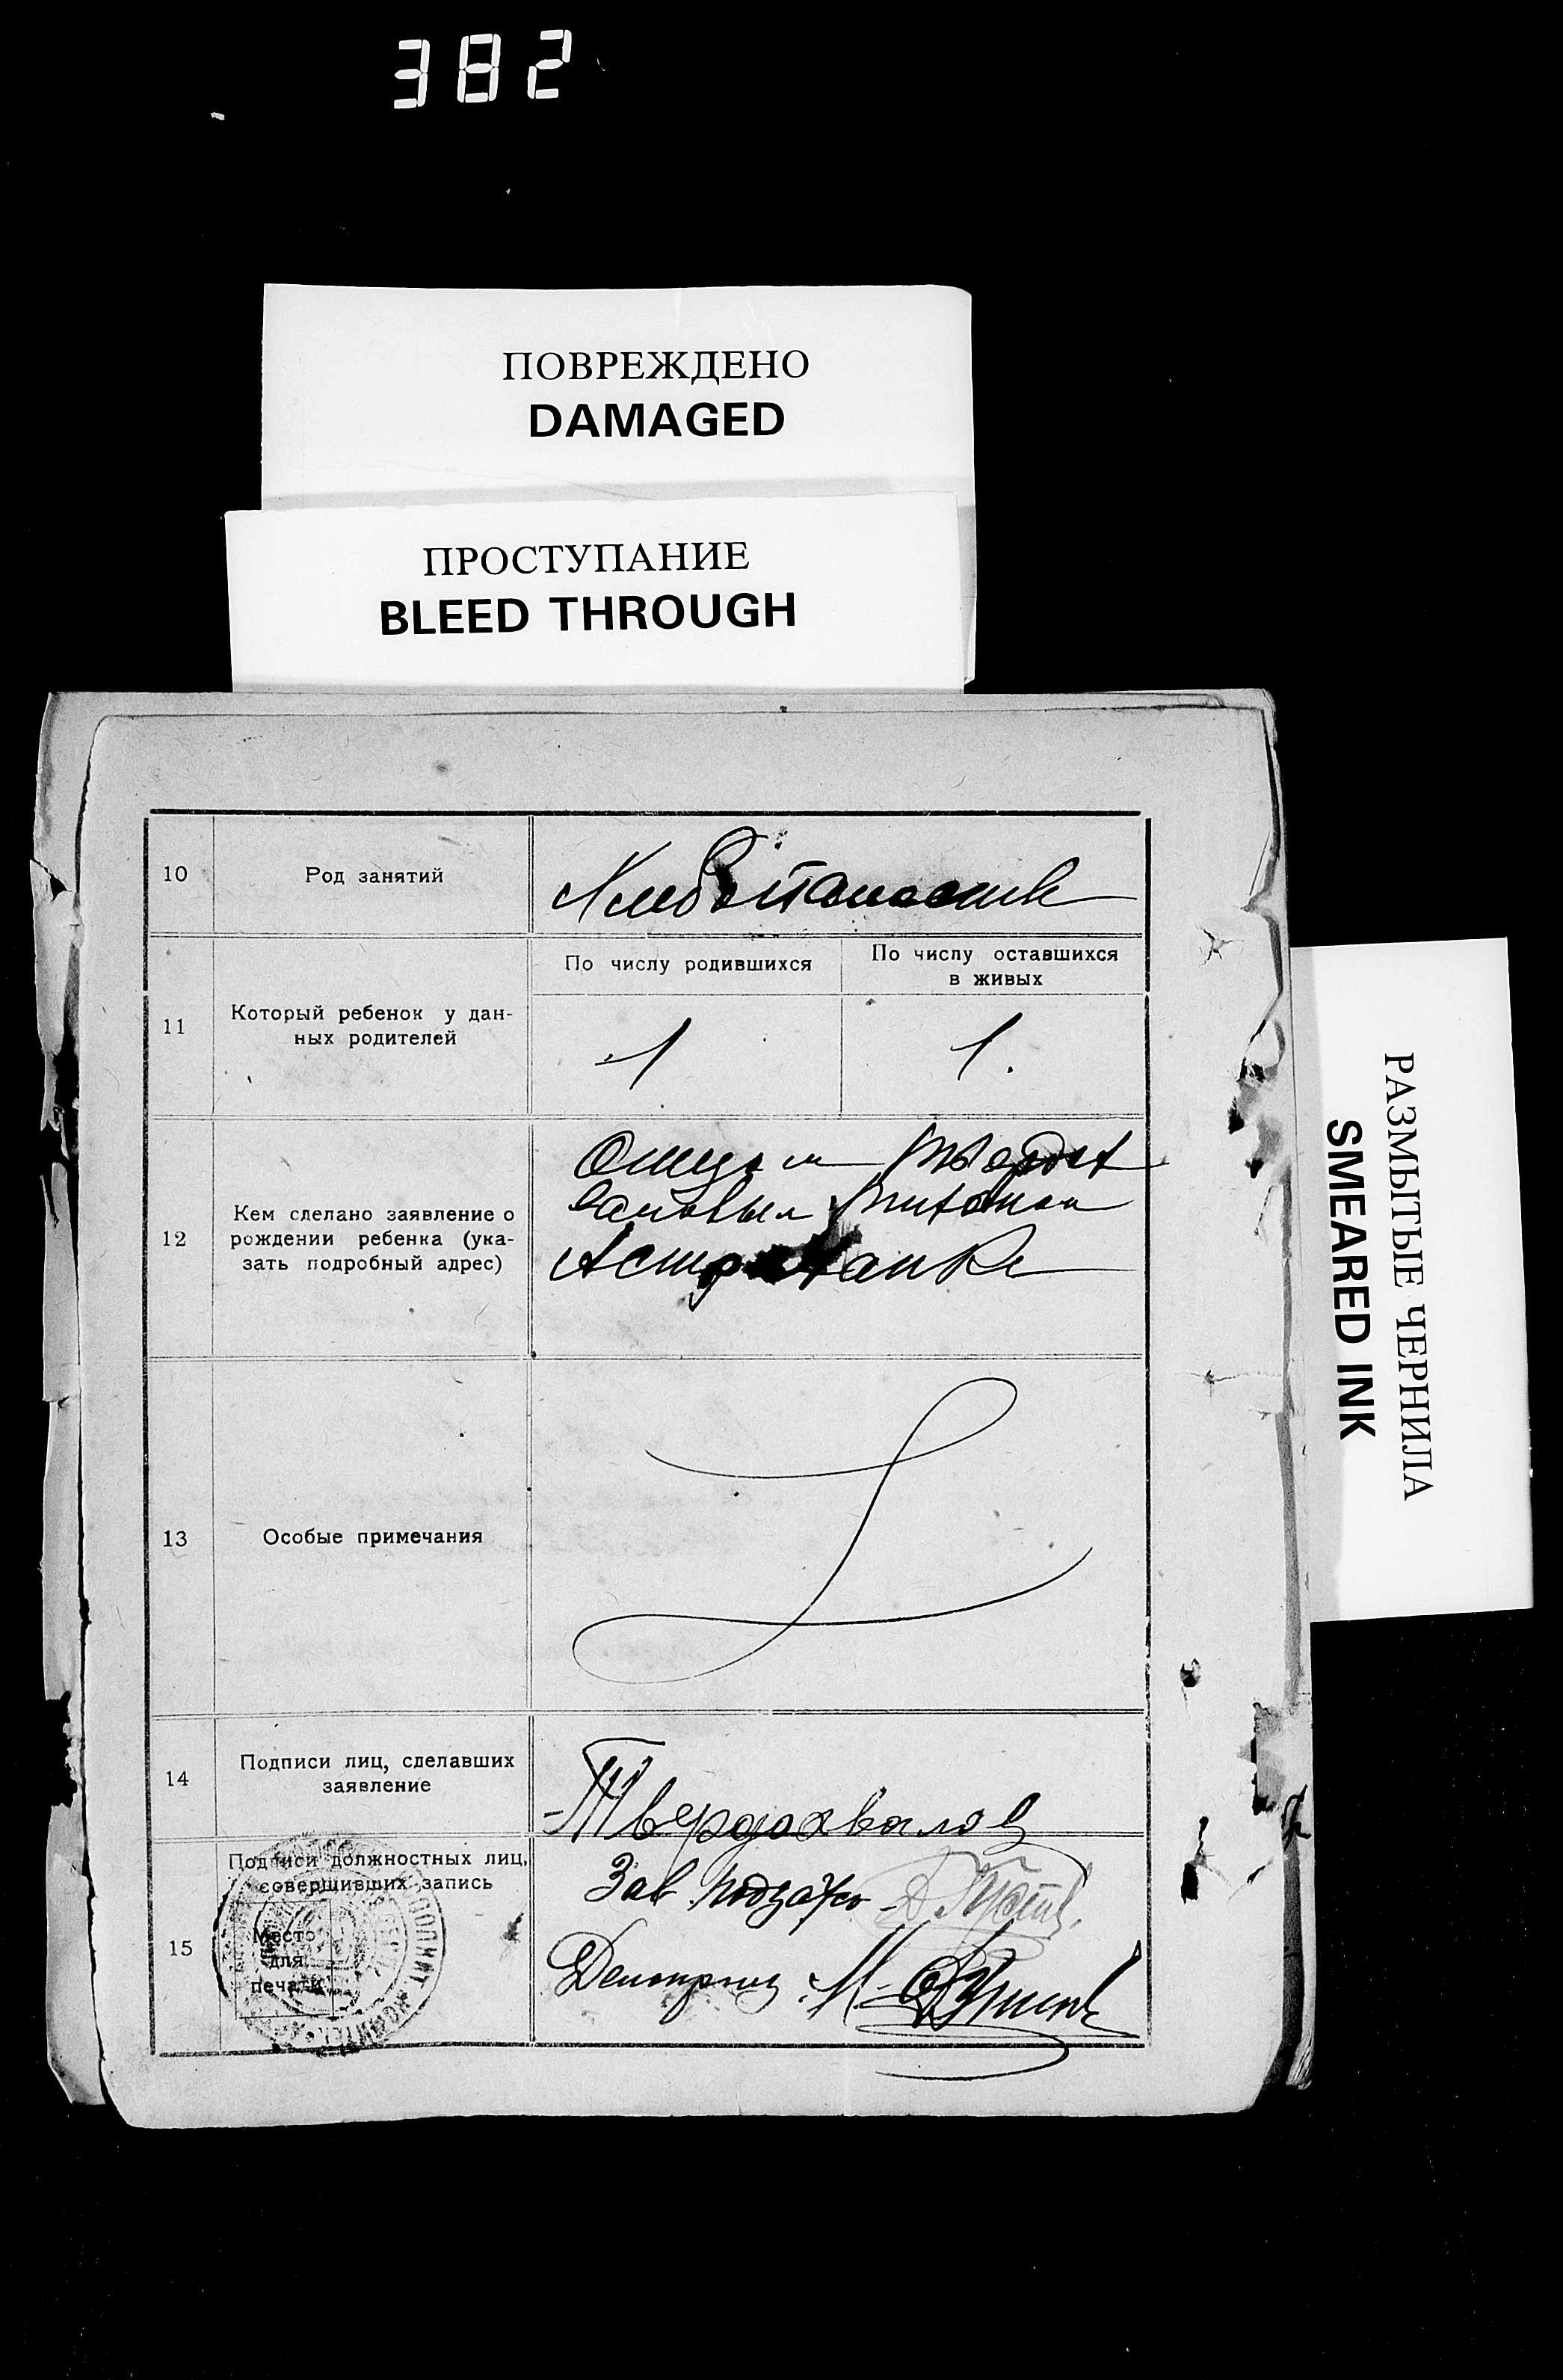 382
ПОВРЕЖДЕНО
DAMAGED
ПРОСТУПАНИЕ
BLEED THROUGH
РАЗМЫТЫЕ ЧЕРНИЛА
SMEARED INK
10 Род занятий
11 Который ребенок у дан-
ных родителей
По числу родившихся
По числу оставшихся
в живых
1 1.
12 Кем сделано заявление о
рождении ребенка (ука-
зать подробный адрес)
Отцом Твордох
валовым Тихоном
Астраханке
13 Особые примечания
14 Подписи лиц, сделавших
заявление
Твердохвалов
15 Подписи должностных лиц,
совершивших запись
Место
для
печати
Зав